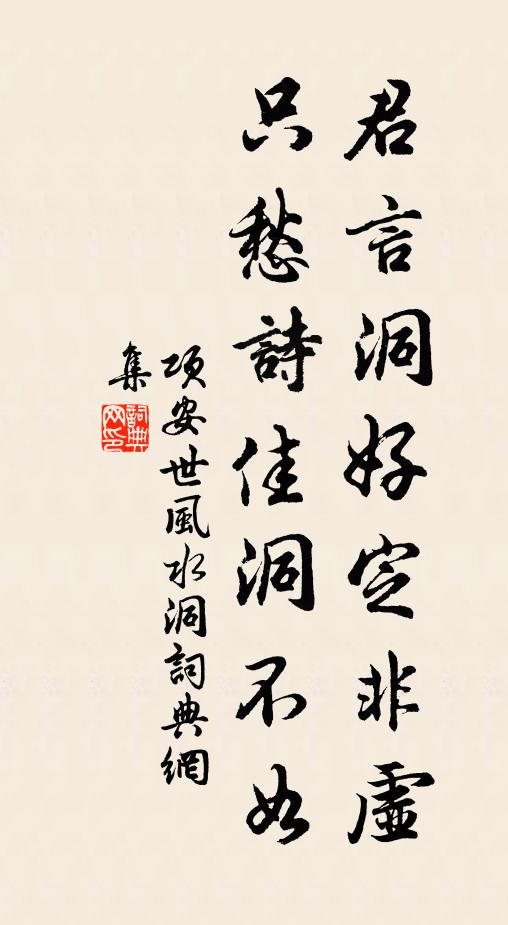 君言洞好定非虛
只愁詩佳洞不如
項安世風水洞詞典網
集
詞典
网印